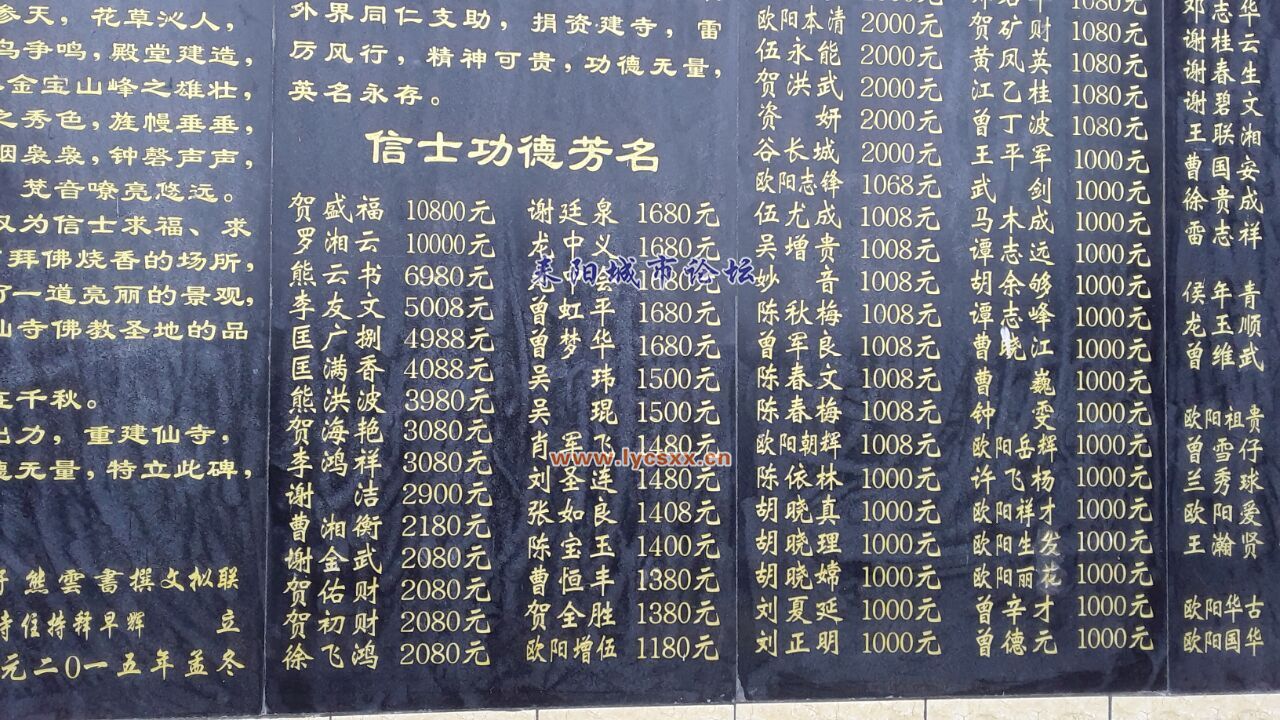 参天，花草沁人，
鸟争鸣，殿堂建造，
金宝山峰之雄壮，
之秀色，旌幡垂垂，
烟袅袅，钟磬声声，
梵音嘹亮悠远。
仅为信士求福、求
拜佛烧香的场所，
了一道亮丽的景观，
仙寺佛教圣地的品
在千秋。
出力，重建仙寺，
德无量，特立此碑，
熊雲書撰文拟联
寺住持释早辉 立
元二〇一五年孟冬
外界同仁支助，捐资建寺，雷
厉风行，精神可贵，功德无量，
英名永存。
信士功德芳名
贺盛福 10800元
罗湘云 10000元
熊云书 6980元
李友文 5008元
匡广捌 4988元
匡满香 4088元
熊洪波 3980元
贺海艳 3080元
李鸿祥 3080元
谢洁 2900元
曹湘衡 2180元
谢金武 2080元
贺佑财 2080元
贺初财 2080元
徐飞鸿 2080元
谢廷泉 1680元
龙中义 1680元
1680元
曾虹平 1680元
曾梦华 1680元
吴玮 1500元
吴琨 1500元
肖军飞 1480元
刘圣连 1480元
张如良 1408元
陈宝玉 1400元
曹恒丰 1380元
贺全胜 1380元
欧阳增伍 1180元
欧阳本清 2000元
伍永能 2000元
贺洪武 2000元
资妍 2000元
谷长城 2000元
欧阳志锋 1068元
伍尤成 1008元
吴增贵 1008元
妙音 1008元
陈秋梅 1008元
曾军良 1008元
陈春文 1008元
陈春梅 1008元
欧阳朝辉 1008元
陈依林 1000元
胡晓真 1000元
胡晓理 1000元
胡晓嫦 1000元
刘夏延 1000元
刘正明 1000元
1080元
贺矿财 1080元
黄凤英 1080元
江乙桂 1080元
曾丁波 1080元
王平军 1000元
武剑 1000元
马木成 1000元
谭志远 1000元
胡余够 1000元
谭志峰 1000元
曹晓江 1000元
曹巍 1000元
钟雯 1000元
欧阳岳辉 1000元
许飞杨 1000元
欧阳祥才 1000元
欧阳生发 1000元
欧阳丽花 1000元
曾辛才 1000元
曾德元 1000元
邓志华
谢桂云
谢春生
谢碧文
王联湘
曹国安
徐贵成
雷志祥
侯年青
龙玉顺
曾维武
欧阳祖贵
曾雪仔
兰秀球
欧阳爱
王瀚贤
欧阳华古
欧阳国华
耒阳城市论坛
www.lycsxx.cn